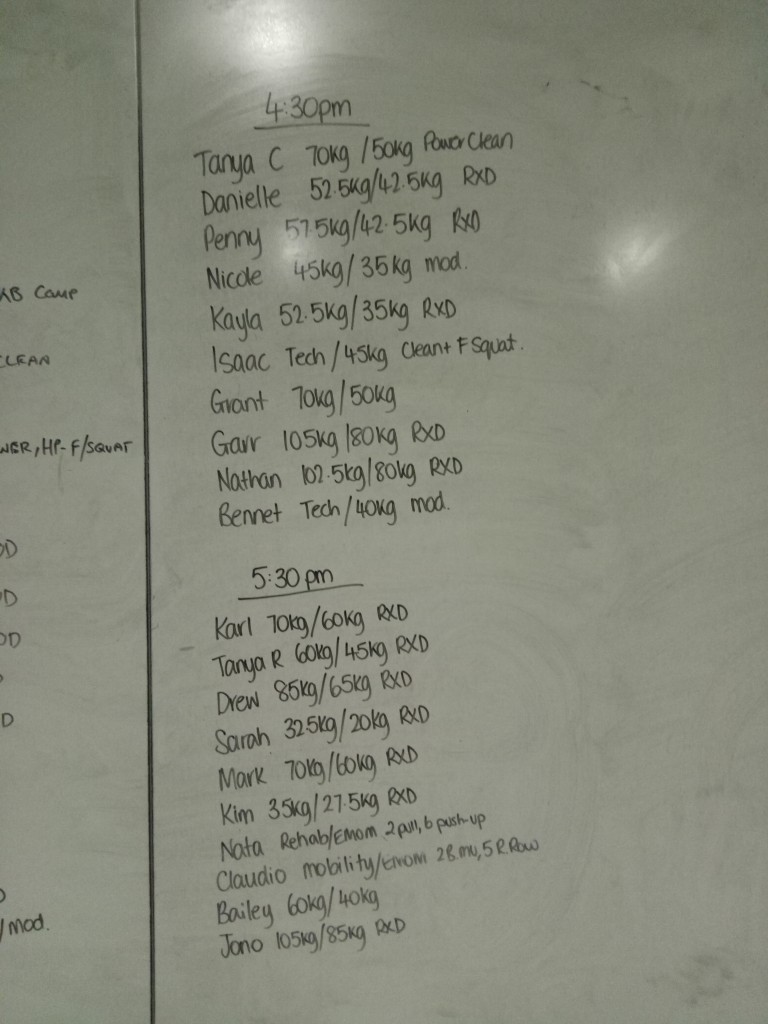 KB Comp
CLEAN
WER, HP-F/SQUAT
OD
D
OD
D
D
/mod.
4:30pm
Tanya C 70kg /50kg Power Clean
Danielle 52.5kg/42.5kg RXD
Penny 57.5kg/42.5kg RXD
Nicole 45kg/35kg mod.
Kayla 52.5kg/35kg RXD
Isaac Tech/45kg Clean+ F Squat.
Grant 70kg/50kg
Garr 105kg/80kg RXD
Nathan 102.5kg/80kg RXD
Bennet Tech/40kg mod.
5:30pm
Karl 70kg/60kg RXD
Tanya R 60kg/45kg RXD
Drew 85kg/65kg RXD
Sarah 32.5kg/20kg RXD
Mark 70kg/60kg RXD
Kim 35kg/27.5kg RXD
Nata Rehab/Emom 2 pull, 6 push-up
Claudio mobility/Emom 2 B.mu, 5 R.Row
Bailey 60kg/40kg
Jono 105kg/85kg RXD